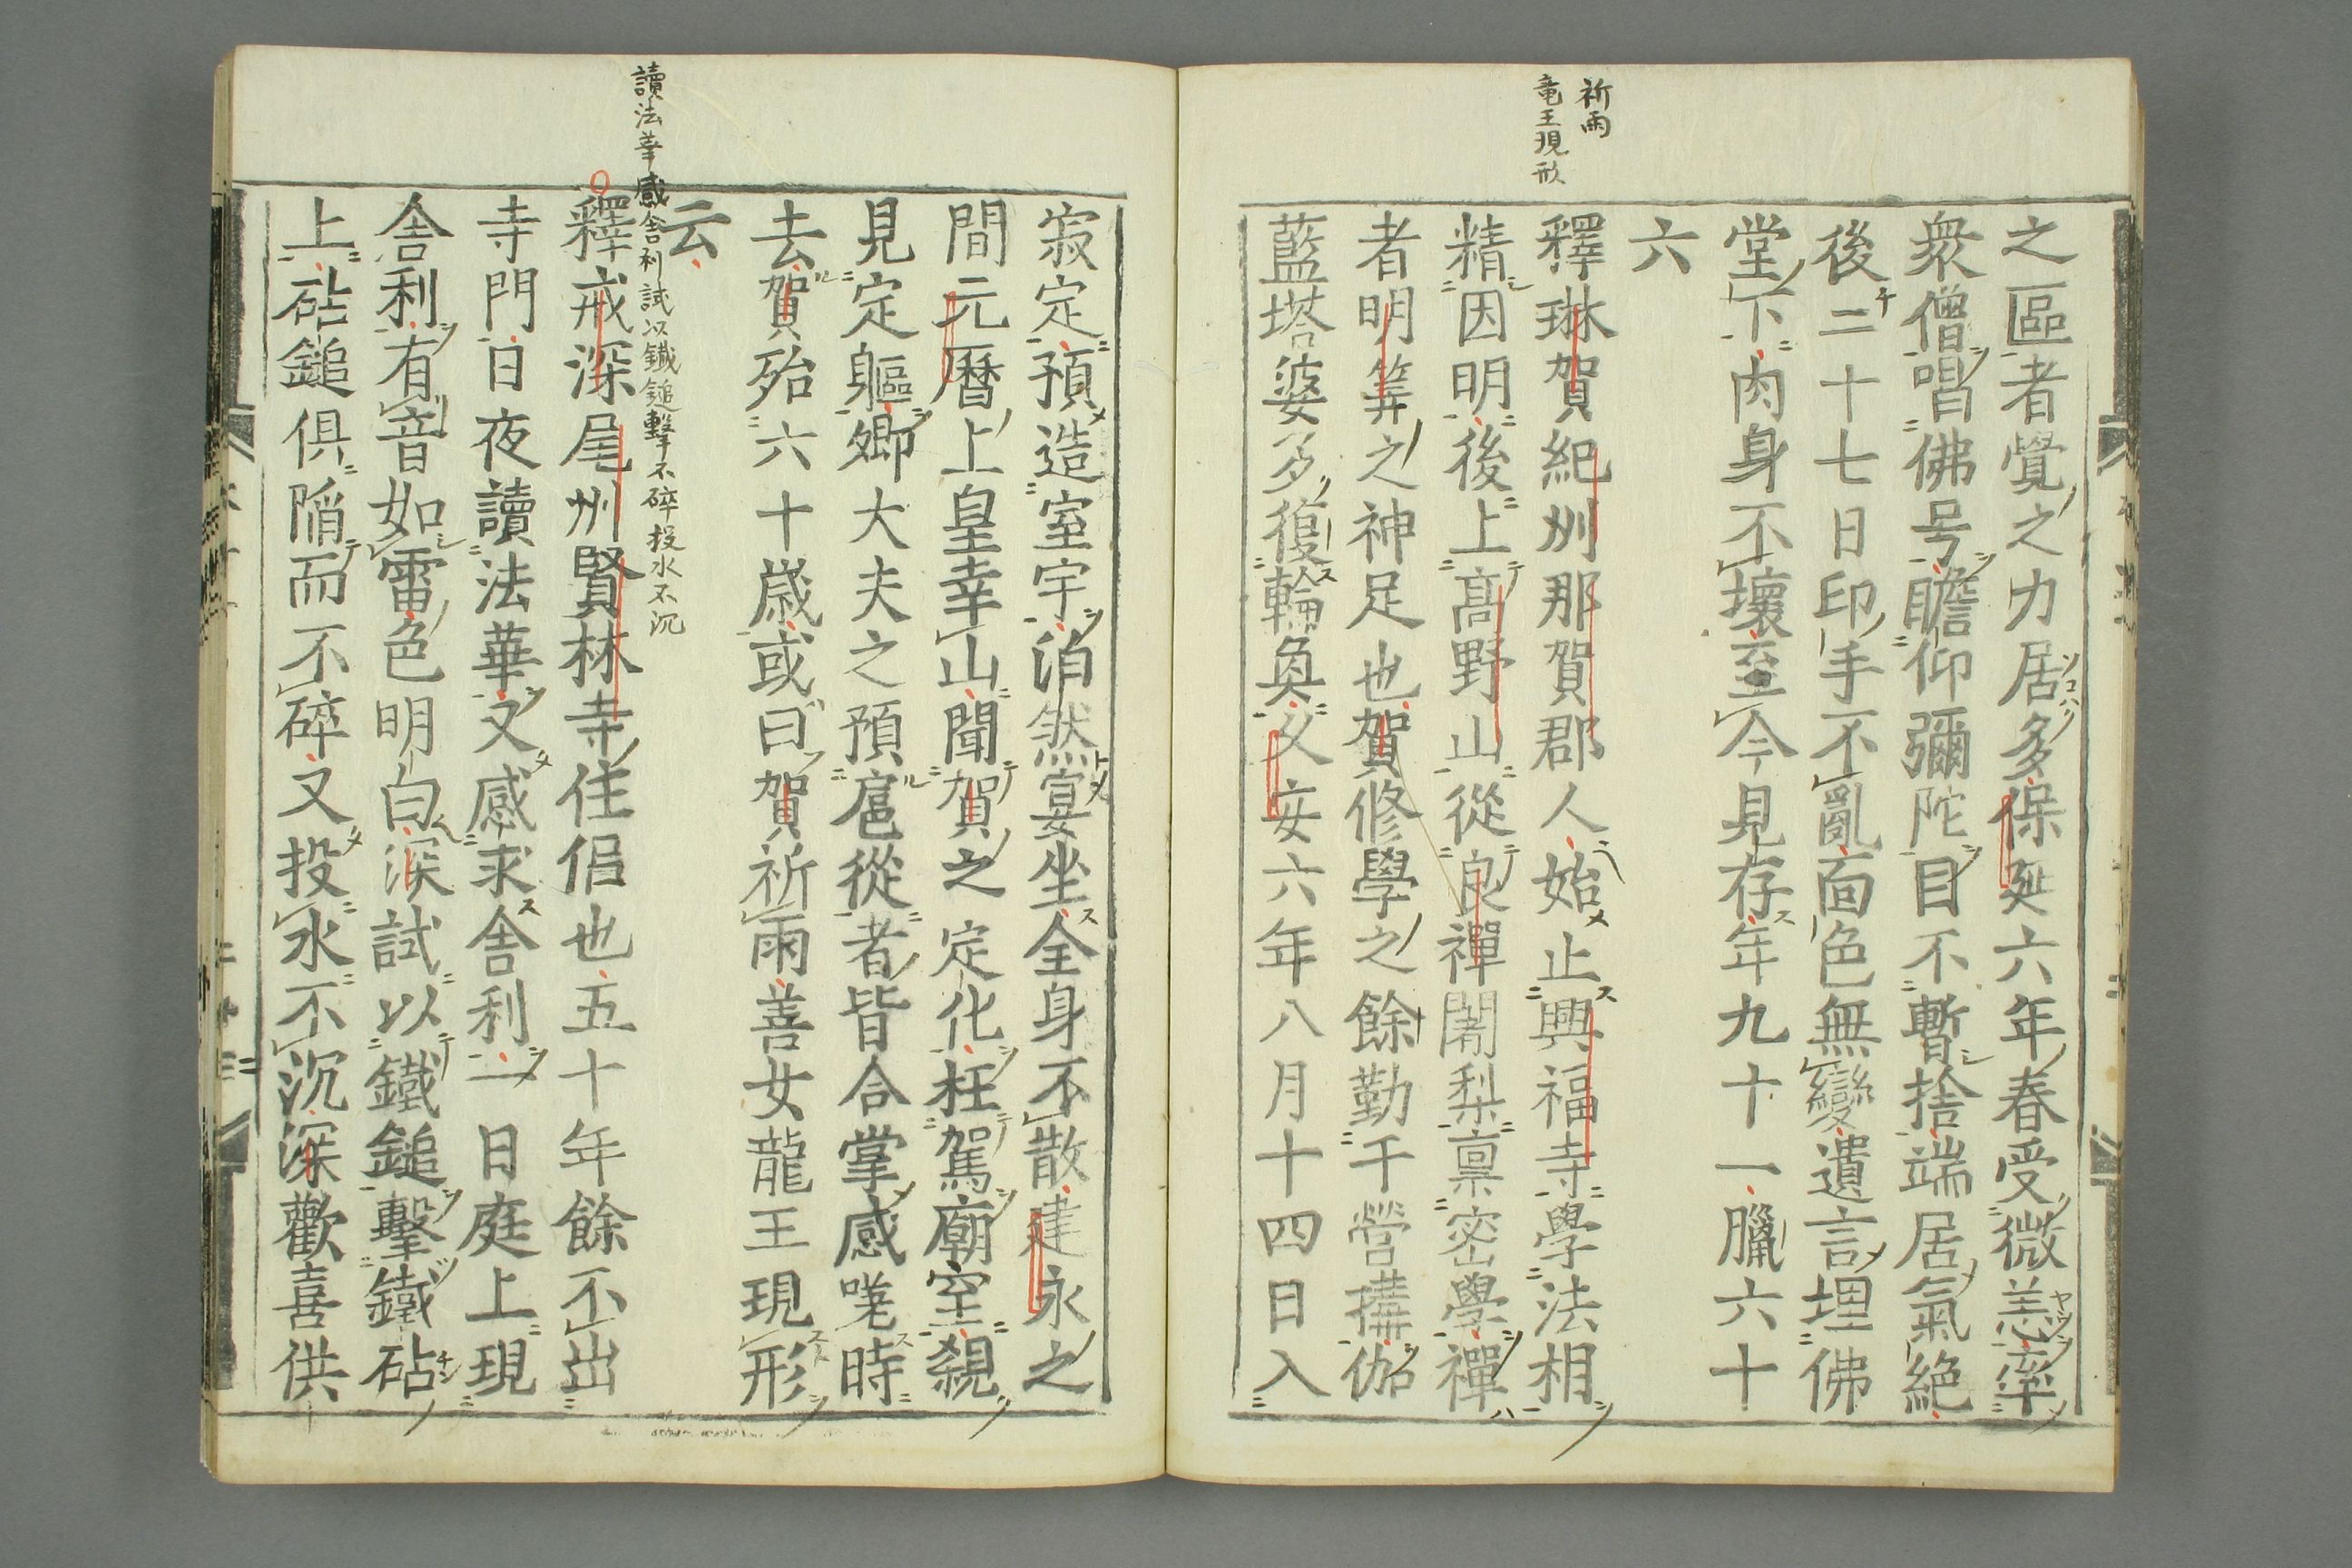 祈雨
竜王現形
之區者覺之力居多保延六年春受微恙率
衆僧唱佛号瞻仰彌陀目不暫捨端居氣絶
後二十七日印手不亂面色無變遺言埋佛
堂下肉身不壞至今見存年九十一臘六十
六
釋琳賀紀州那賀郡人始止興福寺學法相
精因明後上髙野山從良禪闍梨稟密學禪
者明筭之神足也賀修學之餘勤于營搆伽
藍塔婆多復輪奐久安六年八月十四日入
寂定預造室宇泊然宴坐全身不散建永之
間元曆上皇幸山聞賀之定化枉駕廟室親
見定軀卿大夫之預扈從者皆合掌感嘆時
去賀殆六十歳或曰賀祈雨善女龍王現形
云
讀法華感舎利試以鐵鎚擊不碎投水不沉
釋戒深尾州賢林寺住侶也五十年餘不出
寺門日夜讀法華又感求舎利一日庭上現
舎利有音如雷色明白深試以鐵鎚擊鐵砧
上砧鎚俱陷而不碎又投水不沉深歡喜供